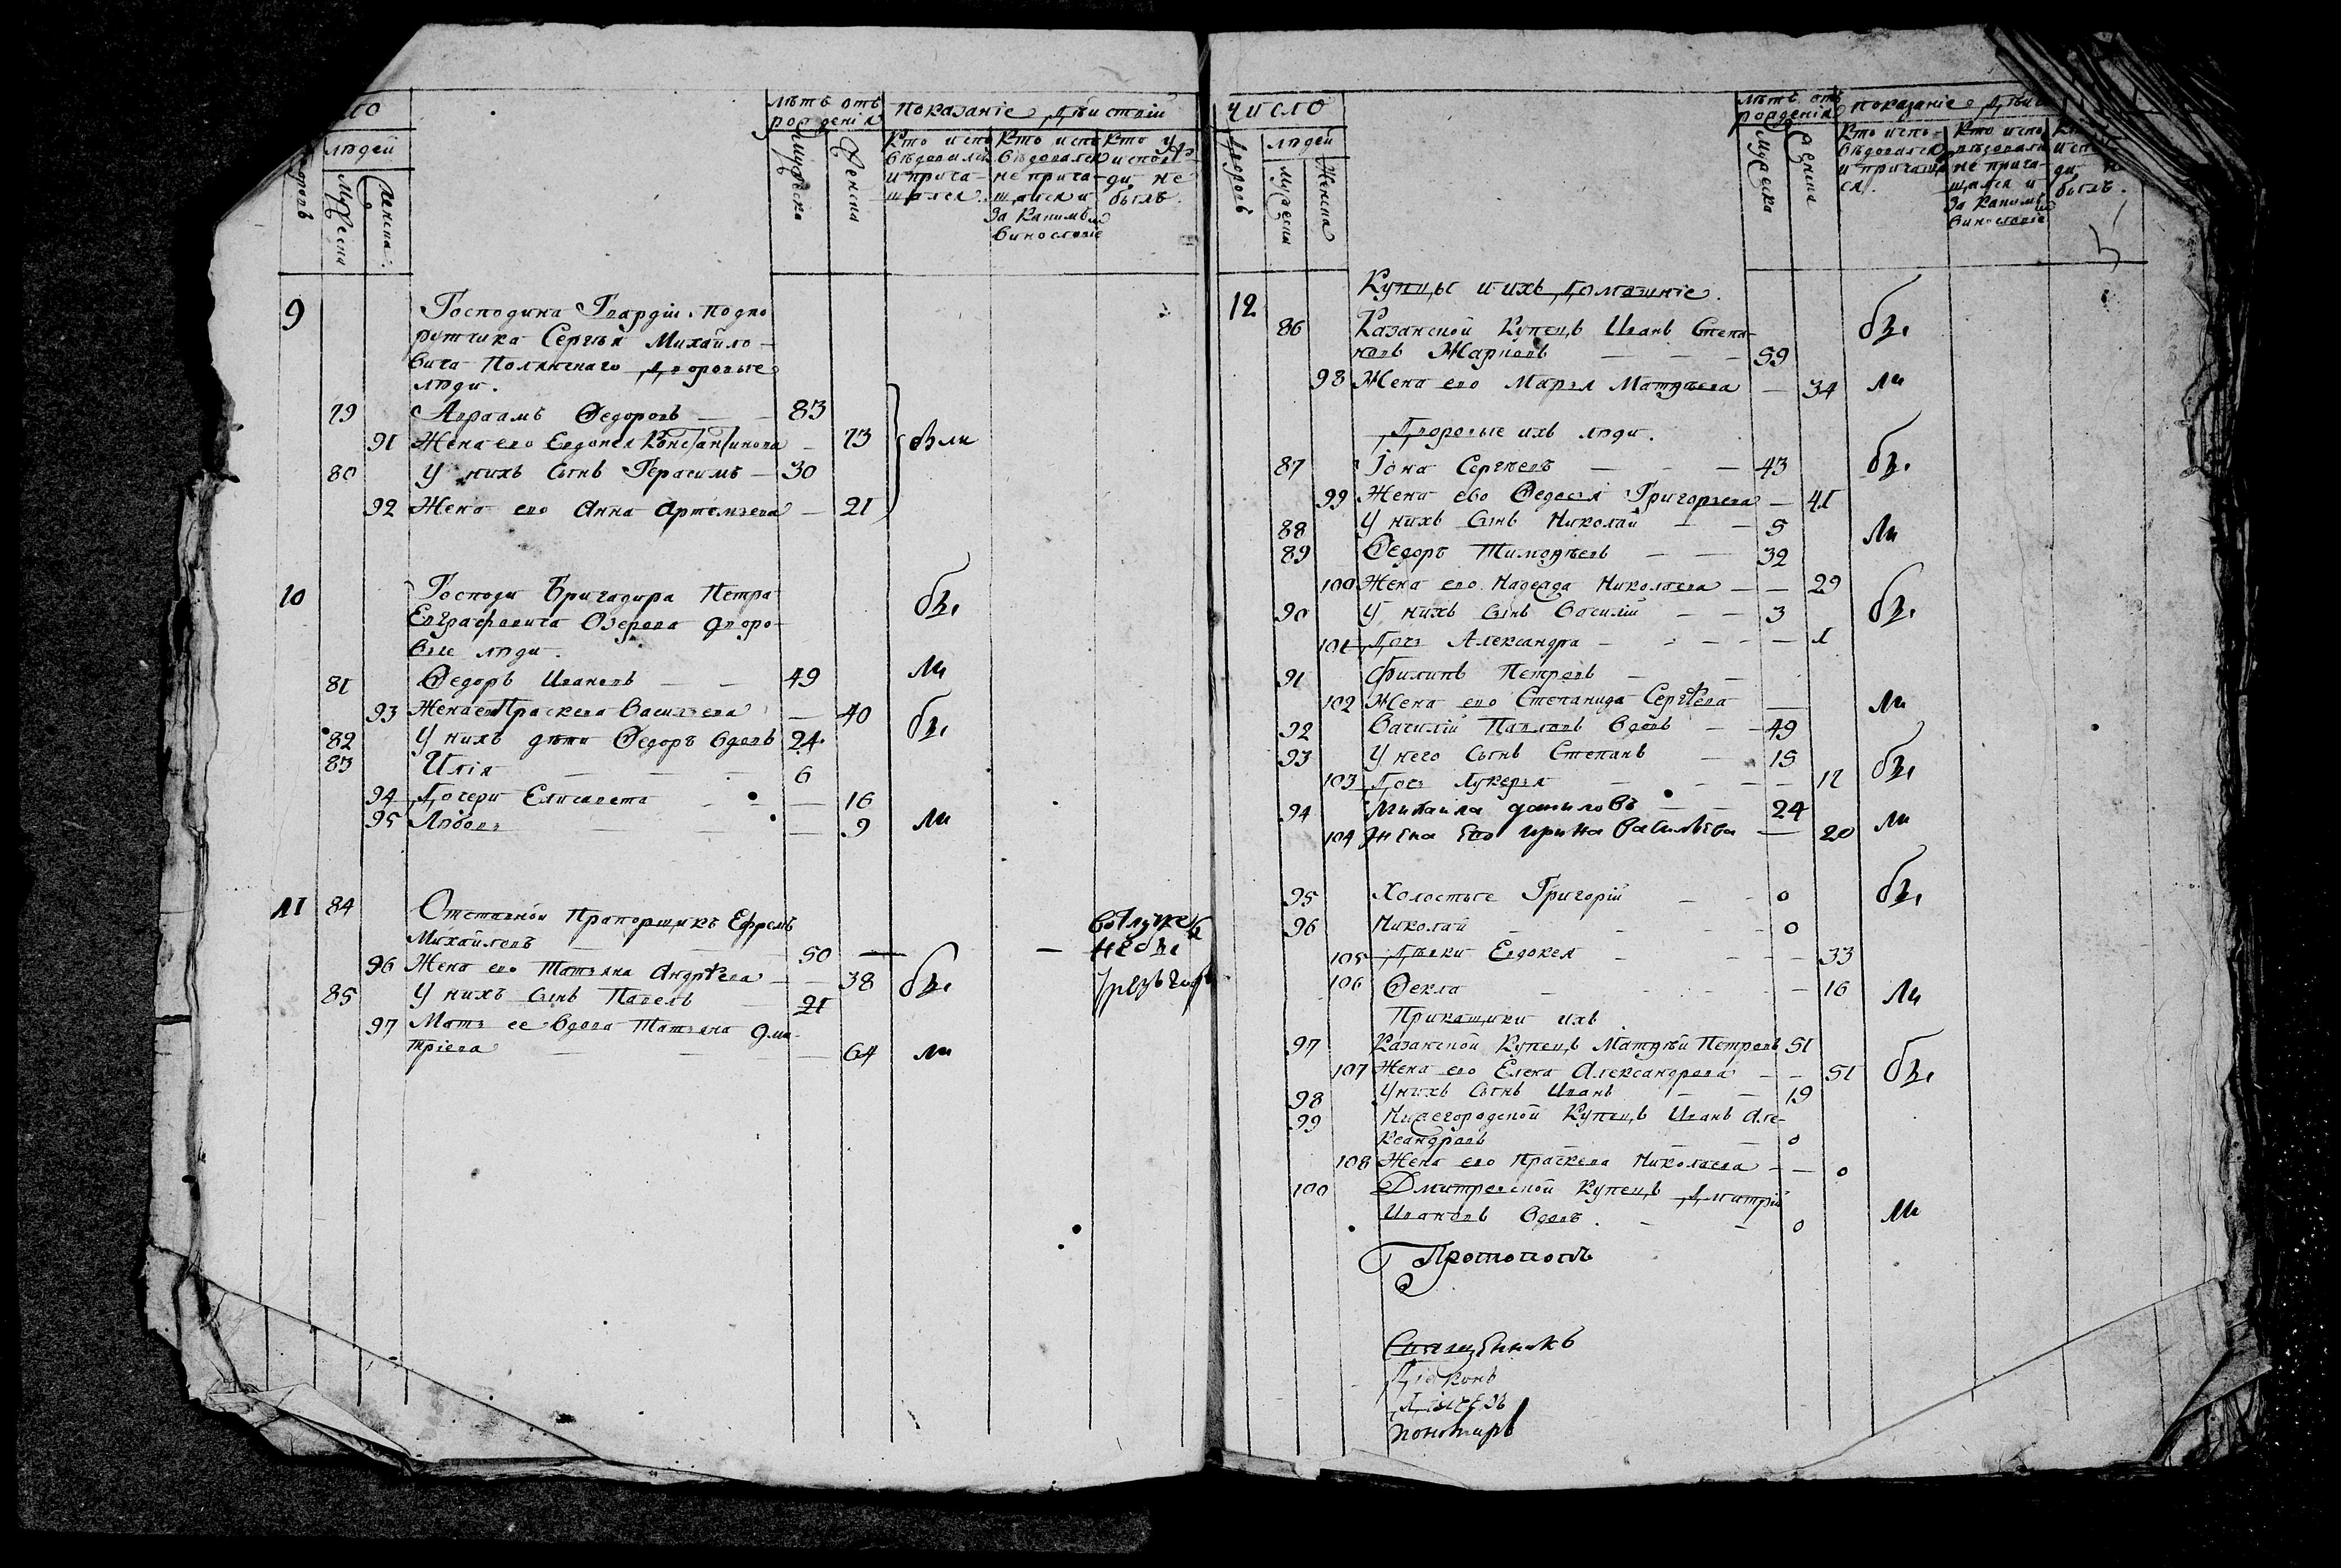 лѣтъ отъ рожденія
показаніе дѣйствій
людей
дворовъ
Мужеска
Женска
Мужеска
Женска
Кто испо
вѣдовался
и прича-
щался.
Кто испо
вѣдовался
не прича-
щался и
За какимъ
винословіе
Кто у
исповѣ-
ди не
былъ.
9
Господина Гвардіи подпо
ручика Сергѣя Михайло-
вича Полянскаго дворовые
люди.
79 Авраамъ Ѳедоровъ 83
91 Жена ево Евдокея Константинова 73
были
80 У нихъ сынъ Герасимъ 30
92 Жена ево Анна Артемьева 21
10
Господи Бригадира Петра
Евграфовича Озерова дворо-
вые люди.
бы
81 Ѳедоръ Ивановъ 49
ли
93 Жена ево Праскева Васильева 40
82 У нихъ дѣти Ѳедоръ вдовъ 24
бы
83 Илія 6
94 Дочери Елисавета 16
95 Любовь 9
ли
11 84 Отставной Прапорщикъ Ефремъ
Михайловъ 50
96 Жена ево Татьяна Андрѣева 38 бы
85 У нихъ сынъ Павелъ 21
97 Мать ее вдова Татьяна Дми-
тріева 64 ли
ЧИСЛО
лѣтъ отъ
рожденія
показаніе
дворовъ
людей
Мужеска
Женска
Мужеска
Женска
Кто испо-
вѣдовался
и причащал
ся.
Кто испо
вѣдовался
не прича-
щался и
За какимъ
винословіе
былъ.
Купцы и ихъ домашніе.
12
86 Казанской Купецъ Иванъ Степа-
новъ Жарковъ 59
бы
98 Жена ево Марья Матвѣева 34 ли
Дворовые ихъ люди.
87 Іона Сергѣевъ 43 бы
99 Жена ево Ѳедосья Григорьева 41
88 У нихъ сынъ Николай 5 ли
89 Ѳедоръ Тимоѳѣевъ 32
100 Жена ево Надежда Николаева 29
90 У нихъ сынъ Василій 3 бы
101 Дочь Александра 1
91 Филипъ Петровъ
102 Жена ево Степанида Сергѣева ли
92 Василій Павловъ вдовъ 49
93 У него сынъ Степанъ 15
103 Дочь Лукерья 12 бы
94 Михаила даниловъ 24
104 жена ево ирина васильева 20 ли
95 Холостые Григорій 0 бы
96 Николай 0
105 Дѣвки Евдокея 33
106 Ѳекла 16 ли
Прикащики ихъ
97 Казанской Купецъ Матѳѣй Петровъ 51
107 Жена ево Елена Александрова 51 бы
98 У нихъ сынъ Иванъ 19
99 Нижегородской Купецъ Иванъ Але-
ксандровъ 0
108 Жена ево Праскева Николаева 0
100 Дмитровской Купецъ Дмитрій
Ивановъ вдовъ. 0 ли
Протопопъ
Священникъ
Діаконъ
Дьячекъ
Пономарь